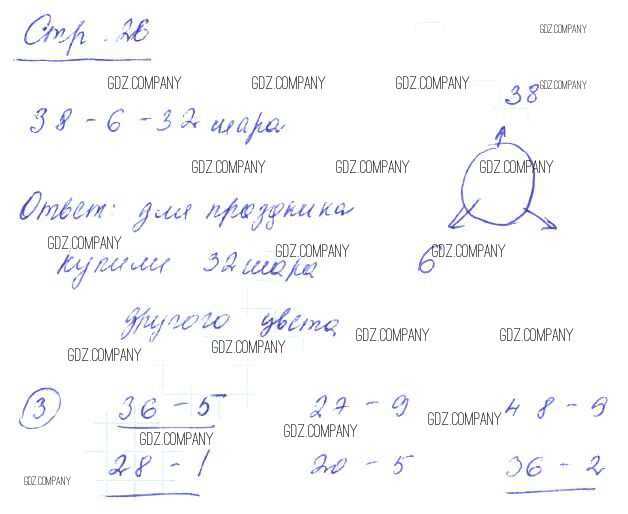 Стр. 26
38
38 - 6 - 32 шара
Ответ: для праздника
купили 32 шара
6
другого цвета
3 36 - 5 27 - 9 48 - 9
28 - 1 20 - 5 36 - 2
GDZ.COMPANY
GDZ.COMPANY GDZ.COMPANY GDZ.COMPANY GDZ.COMPANY
GDZ.COMPANY GDZ.COMPANY GDZ.COMPANY
GDZ.COMPANY GDZ.COMPANY GDZ.COMPANY
GDZ.COMPANY GDZ.COMPANY GDZ.COMPANY GDZ.COMPANY
GDZ.COMPANY GDZ.COMPANY GDZ.COMPANY
GDZ.COMPANY